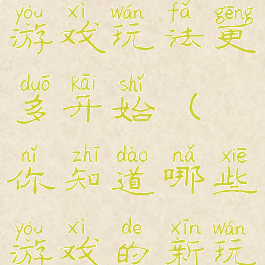 yóu xì wán fǎ gēng
游戏玩法更
duō kāi shǐ
多开始（
nǐ zhī dào nǎ xiē
你知道哪些
yóu xì de xīn wán
游戏的新玩